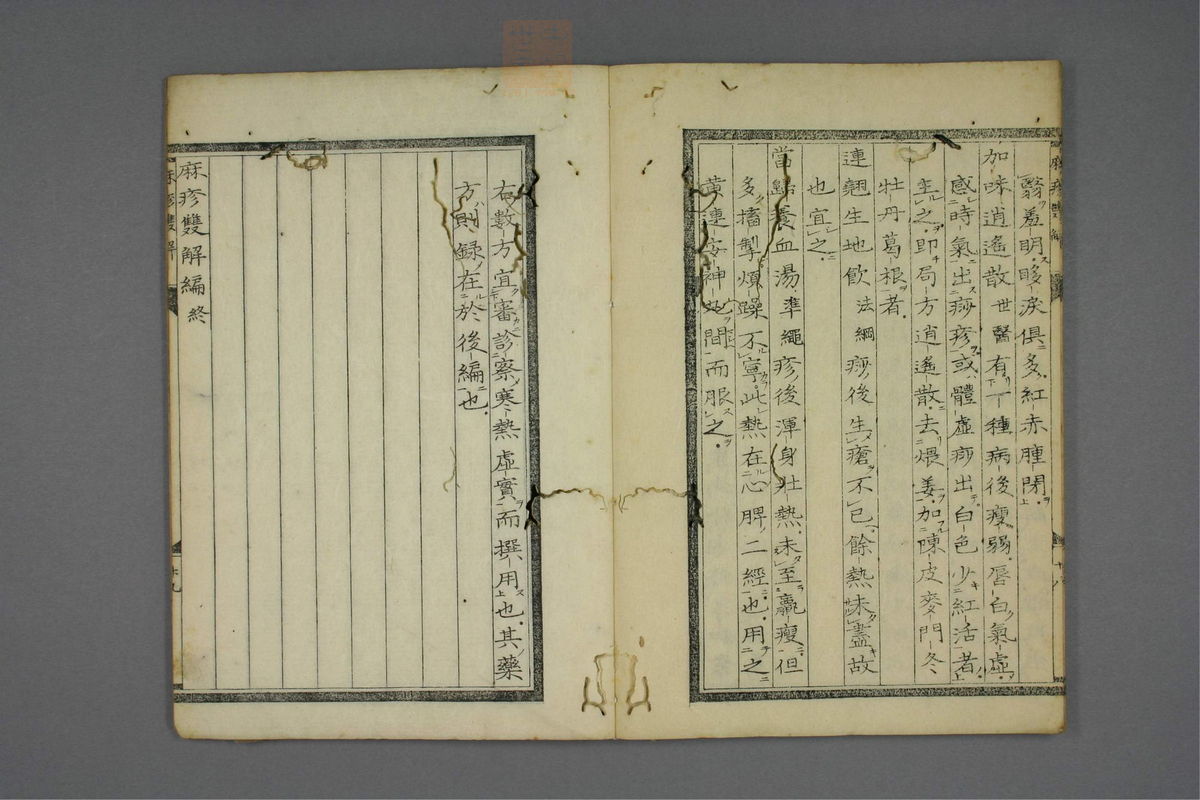 翳羞明眵淚俱多紅赤腫閉
加味逍遙散世醫有下一種病後瘦弱唇白氣虛
感時氣出痧疹或體虛痧出白色少紅活者上
主之即局方逍遙散去煨姜加陳皮麥門冬
牡丹葛根者
連翹生地飲法綱痧後生瘡不已餘熱未盡故
也宜之
當歸養血湯準繩疹後渾身壯熱未至羸瘦但
多搐掣煩躁不寧此熱在心脾二經也用之
黃連安神丸間而服之
右數方宜審診察寒熱虛實而撰用也其藥
方則録在於後編也
麻疹雙解編終